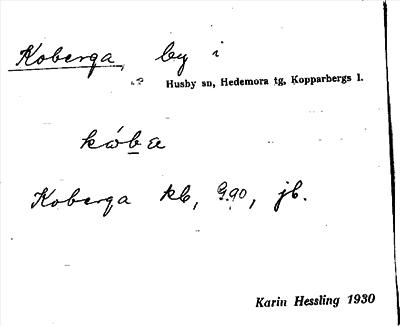 Koberga, by i
Husby sn, Hedemora tg, Kopparbergs l.
Koberga kb, G.90, jb.
Karin Hessling 1930